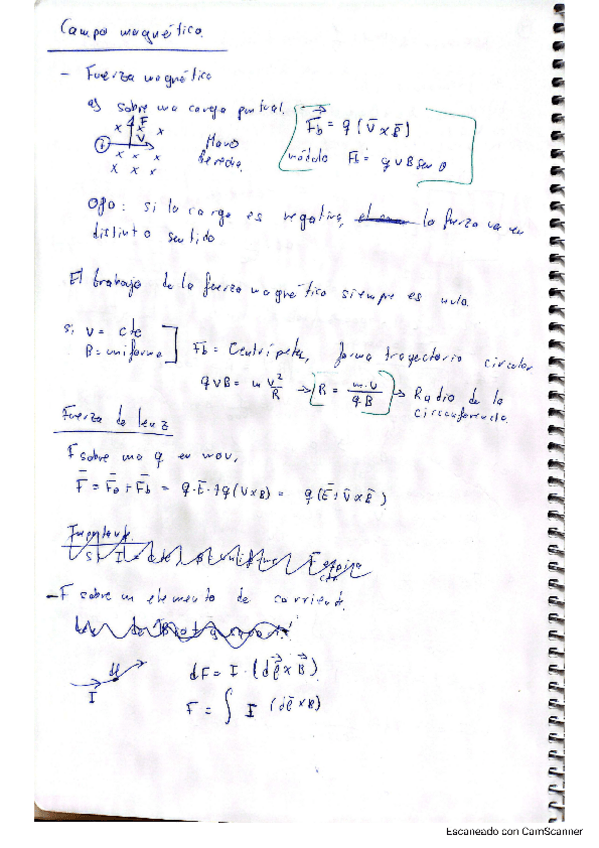 Campo magnético.
- Fuerza magnética
a) sobre una carga puntual.
F
x x x
V
x x x
x x x
Mano
derecha.
F⃗b = q (V̄ x B̄)
módulo Fb = q v B sen θ
Ojo: si la carga es negativa, la fuerza va en
distinto sentido
El trabajo de la fuerza magnética siempre es nulo.
si v = cte
B = uniforme
Fb = Centrípeta, forma trayectoria circular
q v B = m v²/R → R = m·v/q·B → Radio de la
circunferencia.
Fuerza de
F sobre una q en mov,
F̄ = F̄e + F̄b = q·Ē + q(V x B) = q(Ē + V̄ x B̄)
Importante.
- F sobre un elemento de corriente.
dl
I
dF = I · (dl⃗ x B⃗)
F = ∫ I (dl̄ x B)
Escaneado con CamScanner